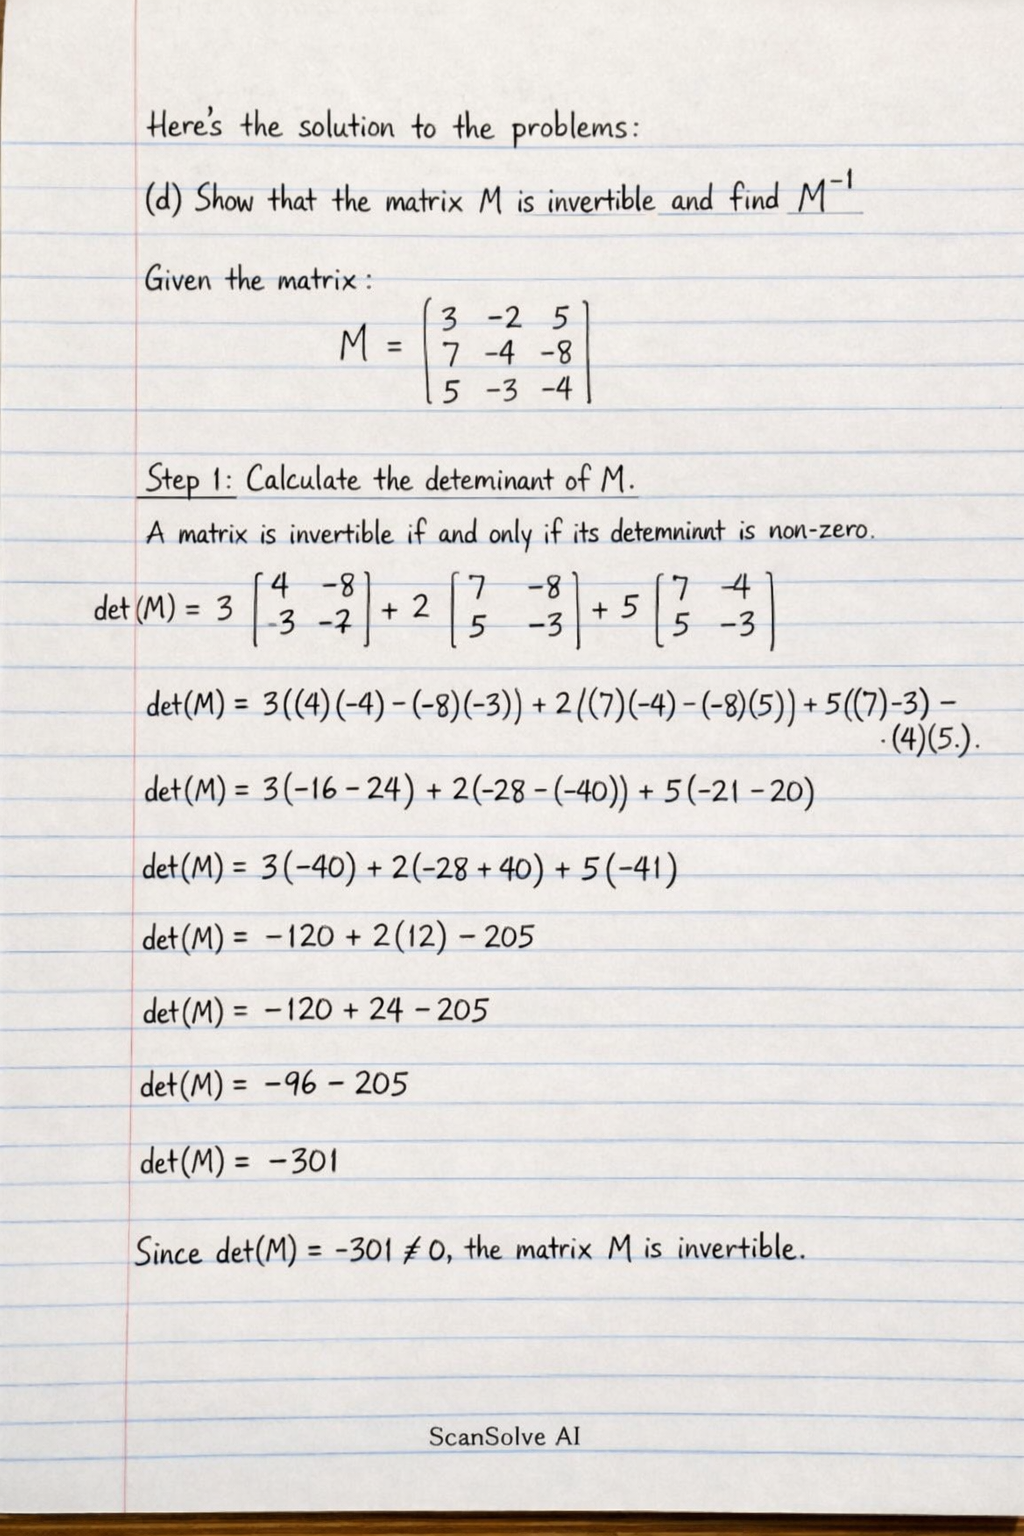 Here's the solution to the problems:
(d) Show that the matrix M is invertible and find M⁻¹
Given the matrix:
M = [3 -2 5
7 -4 -8
5 -3 -4]
Step 1: Calculate the deteminant of M.
A matrix is invertible if and only if its detemninnt is non-zero.
det(M) = 3 [4 -8 + 2 [7 -8 + 5 [7 -4
-3 -7] 5 -3] 5 -3]
det(M) = 3((4)(-4) - (-8)(-3)) + 2/((7)(-4) - (-8)(5)) + 5((7)-3) -
·(4)(5.).
det(M) = 3(-16 - 24) + 2(-28 - (-40)) + 5(-21 - 20)
det(M) = 3(-40) + 2(-28 + 40) + 5(-41)
det(M) = -120 + 2(12) - 205
det(M) = -120 + 24 - 205
det(M) = -96 - 205
det(M) = -301
Since det(M) = -301 ≠ 0, the matrix M is invertible.
ScanSolve AI